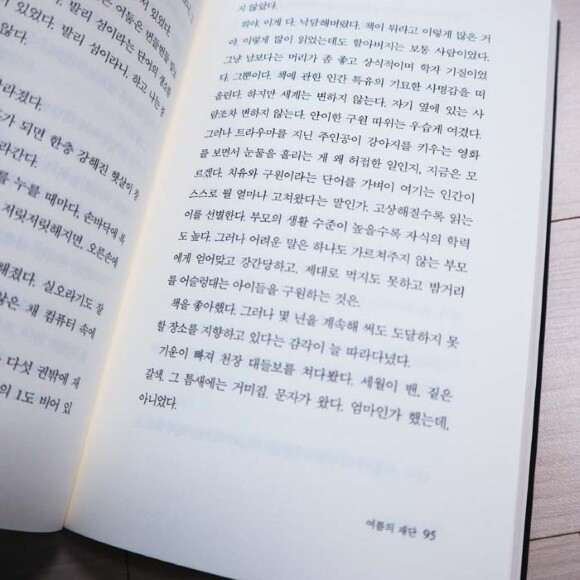 있었다. 발리 섬이라는 단어의 생소
있었다. 발리 섬이라니, 하고 나는
않다.
라졌다.
가 되면 한층 강해진 햇살이
라간다.
를 누를 때마다, 손바닥에
저릿저릿해지면, 오른손에
해졌다. 실오라기도
않은 채 컴퓨터 속에
다섯 권밖에
의 1도 비어 있
지 않았다.
뭐야, 이게 다. 낙담해버렸다. 책이 뭐라고 이렇게 많은 거
야. 이렇게 많이 읽었는데도 할아버지는 보통 사람이었다.
그냥 남보다는 머리가 좀 좋고 상식적이며 학자 기질이었
다. 그뿐이다. 책에 관한 인간 특유의 기묘한 사명감을 떠
올린다. 하지만 세계는 변하지 않는다. 자기 옆에 있는 사
람조차 변하지 않는다. 안이한 구원 따위는 우습게 여겼다.
그러나 트라우마를 지닌 주인공이 강아지를 키우는 영화
를 보면서 눈물을 흘리는 게 왜 허접한 일인지, 지금은 모
르겠다. 치유와 구원이라는 단어를 가벼이 여기는 인간이
스스로 뭘 얼마나 고쳐왔다는 말인가. 고상해질수록 읽는
이를 선별한다. 부모의 생활 수준이 높을수록 자식의 학력
도 높다. 그러나 어려운 말은 하나도 가르쳐주지 않는 부모
에게 얻어맞고 강간당하고, 제대로 먹지도 못하고 밤거리
를 어슬렁대는 아이들을 구원하는 것은.
책을 좋아했다. 그러나 몇 년을 계속해 써도 도달하지 못
할 장소를 지향하고 있다는 감각이 늘 따라다녔다.
기운이 빠져 천장 대들보를 쳐다봤다. 세월이 밴, 짙은
갈색. 그 틈새에는 거미집. 문자가 왔다. 엄마인가 했는데,
아니었다.
여름의 재단 95